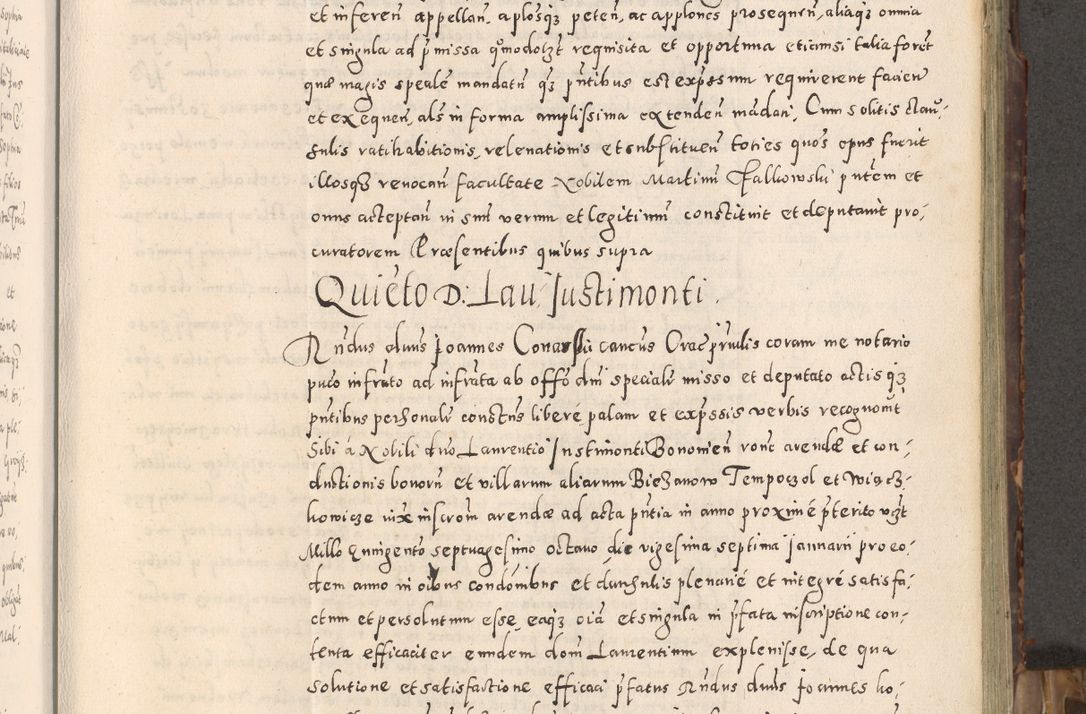 et inferen̄ appellan̄, aplosq3 peten̄, ac applones prosequen̄, aliaq3 omnia
et singula ad p̄missa quōmodolz̄t requisita et opportuna etiamsi talia foret
quæ magis speāle mandatn̄ q3 pn̄tibus est expssum requirerent facien̄
et exequen̄, als̄ in forma amplissima extenden̄ mādan̄, Cum solitis clau,
sulis ratihabitionis, relevationis et substituen̄ toties quos opus fuerit
illosq3 revocan̄ facultate Nobilem Martinū Falkowski pn̄tem et
onus acceptan̄ in sm̄ verum et legitimū constituit et deputavit pro,
curatorem Præsentibus quibus supra
Quieto D: Lau: Justimonti.
Rn̄dus dnus Joannes Conarski cancus Crac̄ prn̄lis coram me notario
puco infrāto ad infrāta ab offō dm̄ speciali misso et deputato actis q3
pn̄tibus personali constn̄s libere palam et expssis verbis recognovit
Sibi a Nobili dno Laurentio Justimonti Bononien̄ ronē arendæ et con,
ductionis bonorū et villarum aliarum Biezanow Tempoczol et Wiacz,
kowicze vix inscrom arendæ ad acta pn̄tia in anno proximē p̄terito vz̄t
Millo Quingento septuagesimo octavo die vigesima septima Januarii pro eo,
dem anno in oībus condōnibus et clausulis plenariē et integrē satisfa,
ctum et persolutum esse, eaq3 oīa et singula in p̄fata inscriptione con,
tenta efficaciter eundem dom̄ Laurentium explenisse, de qua
solutione et satisfactione efficaci p̄fatus Rn̄dus dnus Joannes ho,